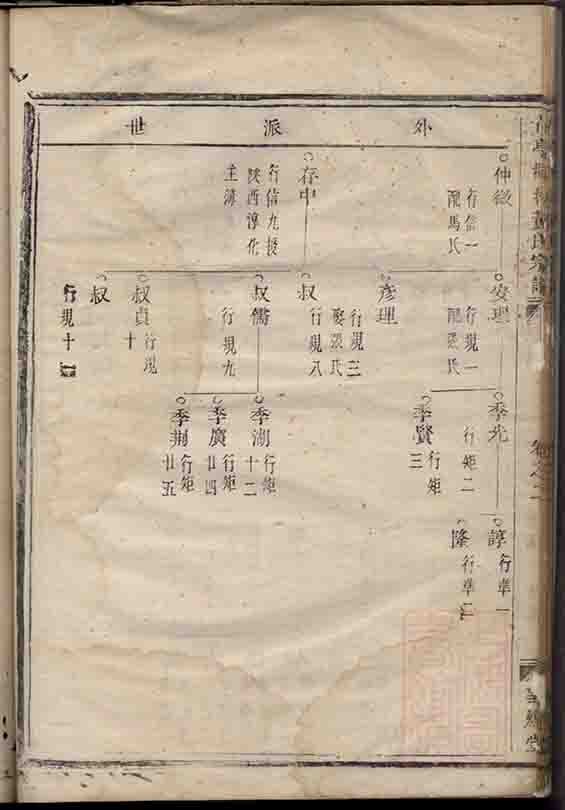 外派世
仲微
行信一
配馬氏
存中
行信九授
陝西淳化
主簿
安理
行規一
配張氏
彥理
行規三
娶張氏
叔
行規八
叔儒
行規九
叔貞
行規
十
叔
行規十
季光
行矩二
季賢
行矩
三
季湖
行矩
十二
季廣
行矩
廿四
季荆
行矩
廿五
諄
行準一
隆
行準二
氏宗譜
卷之二